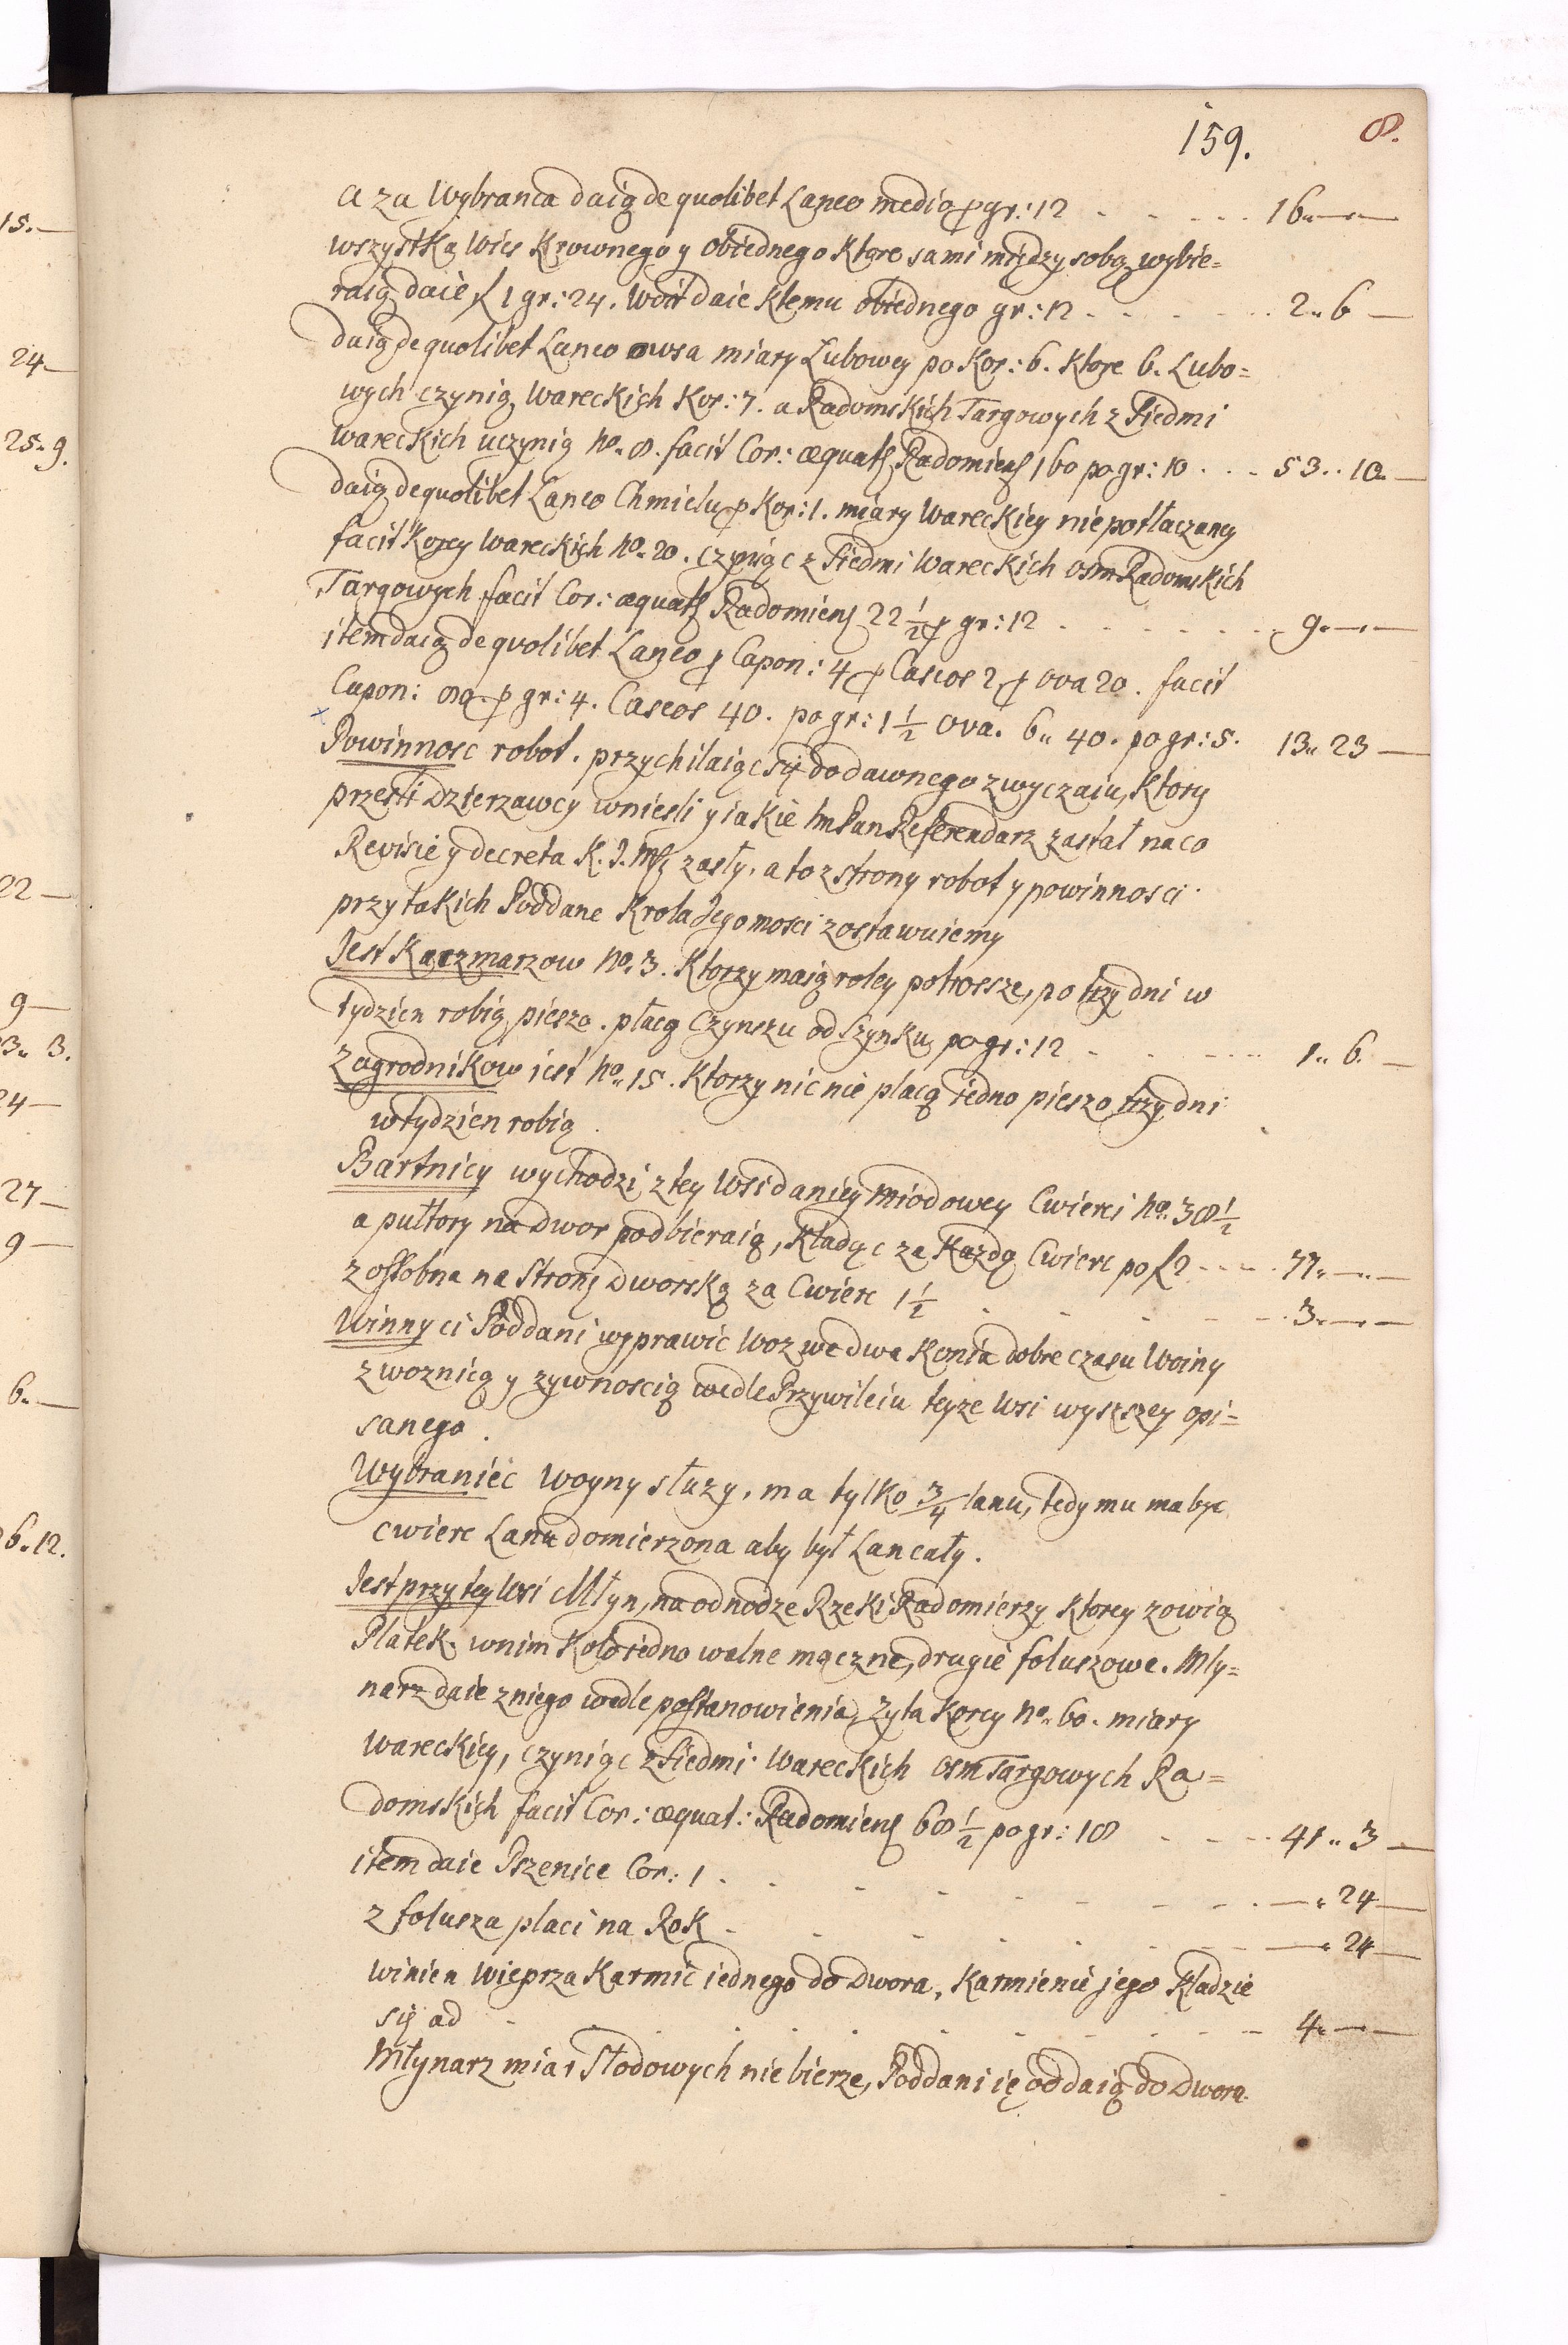 159.
8.
a za Wybranca daią de quolibet Laneo medio p gr: 12 - - - - - 16„—„—
wszystką Wies Krownego y obiednego Ktore sami między sobą wybie=
raią daie f 1 gr: 24. Woit daie Ktemu obiednego gr: 12 - - - - - 2„ 6 —
daią de quolibet Laneo owsa miary Lubowey po Kor: 6. Ktore 6. Lubo=
wych czynią Wareckich Kor: 7. a Radomskich Targowych z Siedmi
Wareckich uczynią No. 8. facit Cor: æquat Radomiens 160 po gr: 10 - - - 53„ 10„ —
daią de quolibet Laneo Chmielu p Kor: 1. miary Wareckiey niepotłaczaney
facit Korcy Wareckich No. 20. czyniąc z Siedmi Wareckich osm Radomskich
Targowych facit Cor: æquat Radomiens 22 1/2 p gr: 12 - - - - - 9„—„—
item daią de quolibet Laneo p Capon: 4 p Caseos 2 p ova 20. facit
Capon: 80 p gr: 4. Caseos 40. po gr: 1 1/2 Ova. 6„ 40. po gr: 5. 13„ 23 —
Powinnosc robot. przychilaiąc się do dawnego zwyczaiu, Ktory
przesli Dzierzawcy wniesli y iakie Im Pan Referendarz zastał na co
Revisie y decreta K. J. Ms zasły, a to z strony robot y powinnosci
przy takich Poddane Krola Jegomosci zostawuiemy
Jest Kaczmarzow No. 3. Ktorzy maią roley potrosze, po trzy dni w
tydzien robią pieszo. płacą Czynszu od Szynku po gr: 12 - - - - - 1„ 6. —
Zagrodnikow iest No. 15. Ktorzy nic nie placą iedno pieszo trzy dni
w tydzien robią.
Bartnicy wychodzi z tey Wsi daniey Miodowey Cwierci No. 38 1/2
a pułtory na Dwor podbieraią, Kładąc za Kazdą Cwierc po f 2 - - - - 77„—„—
z osobna na Stronę Dworską za Cwierc 1 1/2 - - - - - 3„—„—
Winny ci Poddani wyprawic Woz we dwa Konia dobre czasu Woiny
z woznicą y zywnoscią wedle Przywileiu teyze Wsi wyszszey opi=
sanego.
Wybraniec Woyny słuzy, ma tylko 3/4 lanu, tedy mu ma byc
cwierc Lanu domierzona aby był Lan cały.
Jest przy tey Wsi Młyn, na odnodze Rzeki Radomierzy Ktorey zowią
Platek. w nim Koło iedno walne mączne, drugie foluszowe. Mly=
narz daie z niego wedle postanowienia, zyta Korcy No. 60. miary
Wareckiey, czyniąc z Siedmi Wareckich osm Targowych Ra=
domskich facit Cor: æquat: Radomiens 68 1/2 po gr: 18 - - - - 41„ 3 —
item daie Pszenice Cor: 1 - - - - - —„ 24 —
z folusza placi na Rok - - - - - —„ 24 —
winien Wieprza Karmic iednego do Dwora, Karmienie jego Kładzie
się ad - - - - - 4„—„—
Młynarz miar Słodowych nie bierze, Poddani ię oddaią do Dwora.
15.—
24—
25„ 9.
22—
9—
3„ 3.
24—
27—
9—
6„—
6„ 12.